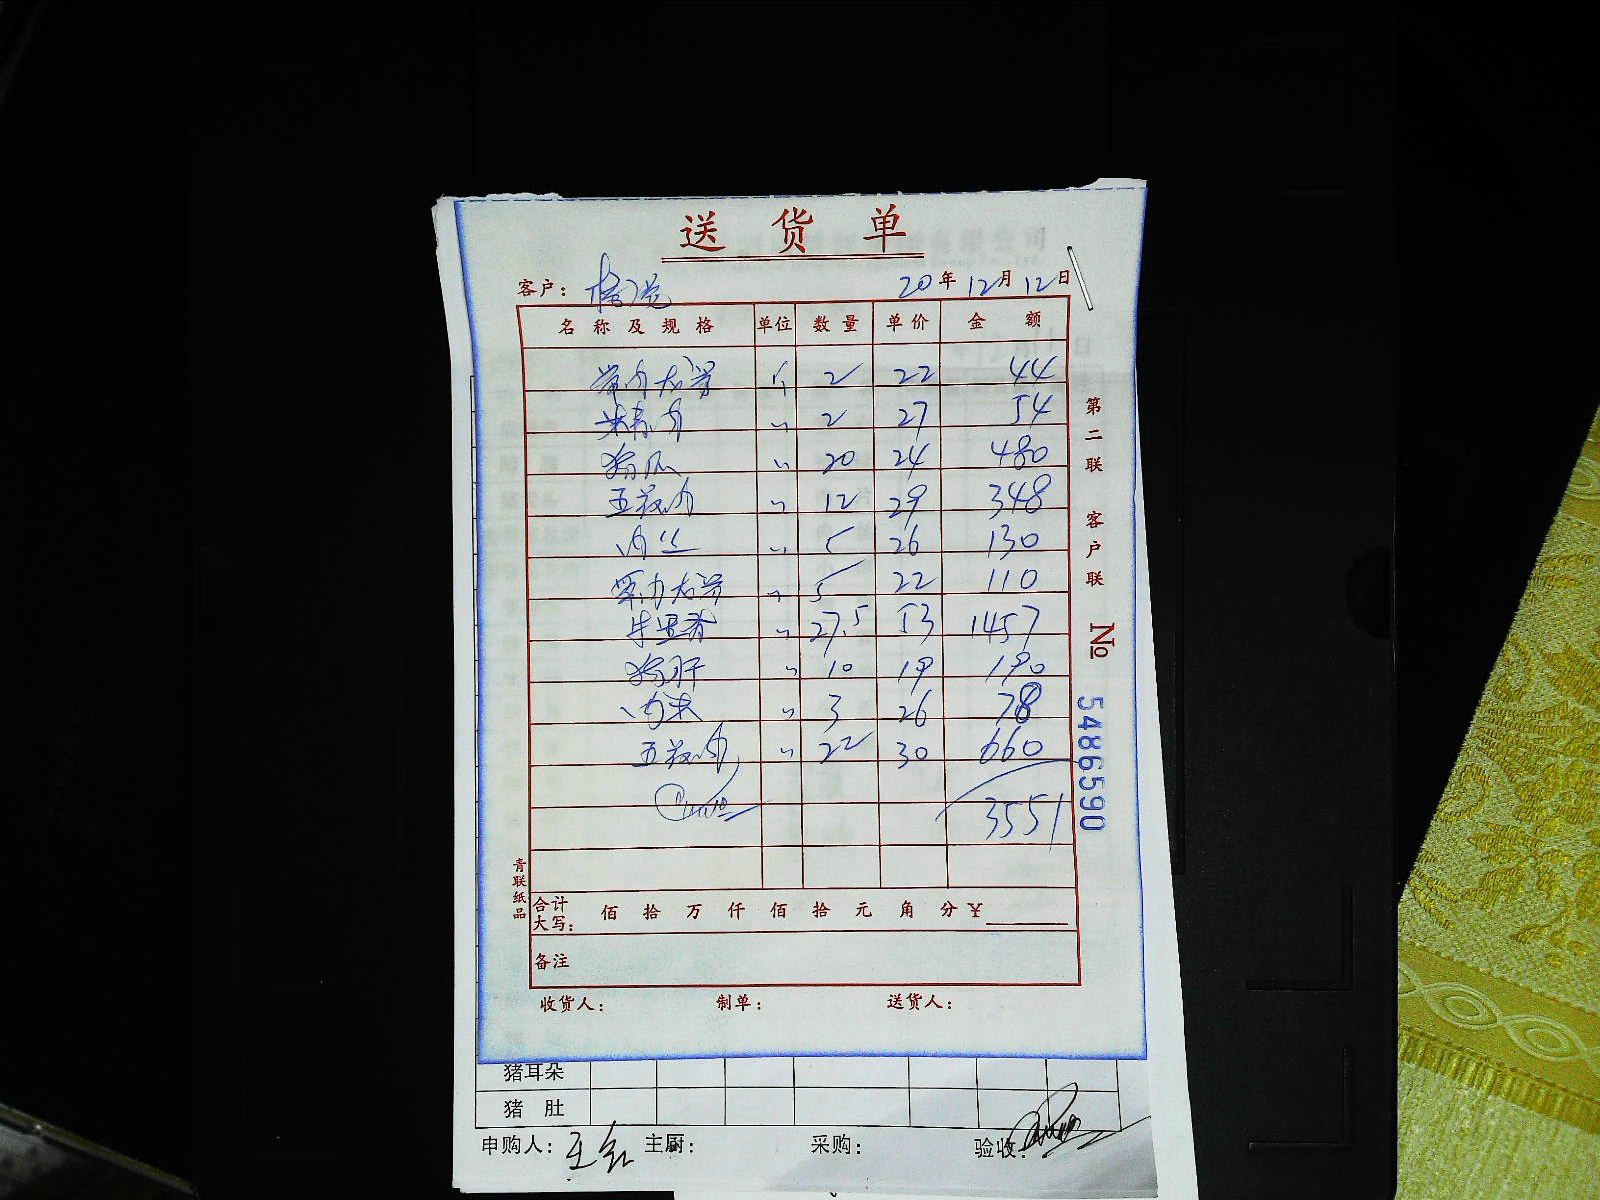 送 货 单
客户： 20年12月12日
名称及规格 单位 数量 单价 金额
2 22 44
〃 2 27 54
〃 20 24 480
五花肉 〃 12 29 348
肉丝 〃 5 26 130
〃 5 22 110
〃 27.5 53 1457
猪肝 〃 10 19 190
肉末 〃 3 26 78
五花肉 〃 22 30 660
3551
合计大写： 佰 拾 万 仟 佰 拾 元 角 分 ¥
备注
收货人： 制单： 送货人：
第二联 客户联
№ 5486590
青联纸品
猪耳朵
猪 肚
申购人： 主厨： 采购： 验收：